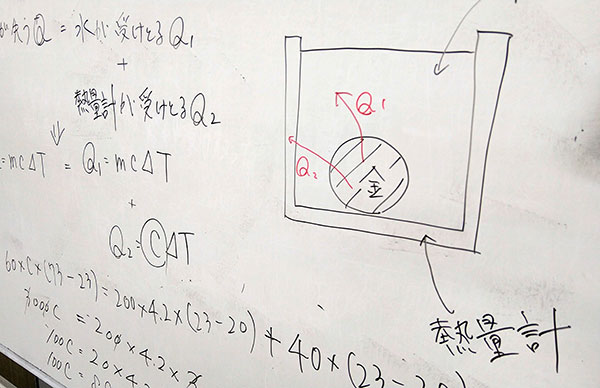 が失うQ = 水が受けとるQ₁
+
熱量計が受けとるQ₂
=mCΔT = Q₁=mCΔT
+
Q₂=CΔT
60×C×(73-23)=200×4.2×(23-20)+40×(23-20)
3000C = 200×4.2×3
100C=20×4.2
100C=
Q₁
Q₂
金
熱量計